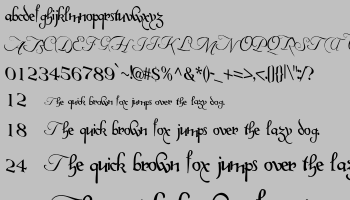 abcdefghijklmnopqrstuvwxyz
ABCDEFGHIJKLMNOPQRSTU
0123456789`~!@#$%^&*()-_+=>,<.{}[]|\"':;/?
12 The quick brown fox jumps over the lazy dog.
18 The quick brown fox jumps over the lazy dog.
24 The quick brown fox jumps over the laz